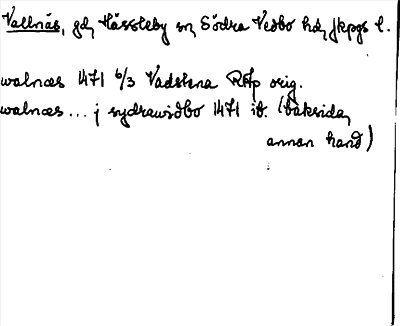 Vallnäs, gd, Hässleby sn, Södra Vedbo hd, Jkpgs l.
walnæs 1471 6/3 Vadstena RAp orig.
walnæs... j sydrawidbo 1471 ib. (baksida,
annan hand)